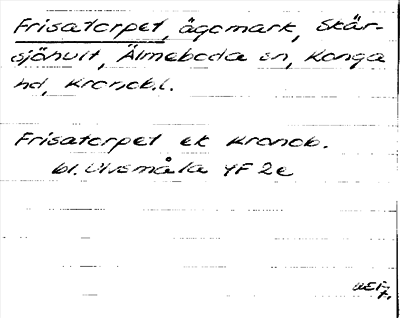 Frisatorpet, ägomark, Skär-
sjöhult, Älmeboda sn, Konga
hd, Kronob.l.
Frisatorpet ek Kronob.
bl. Ulvsmåla 4F 2e